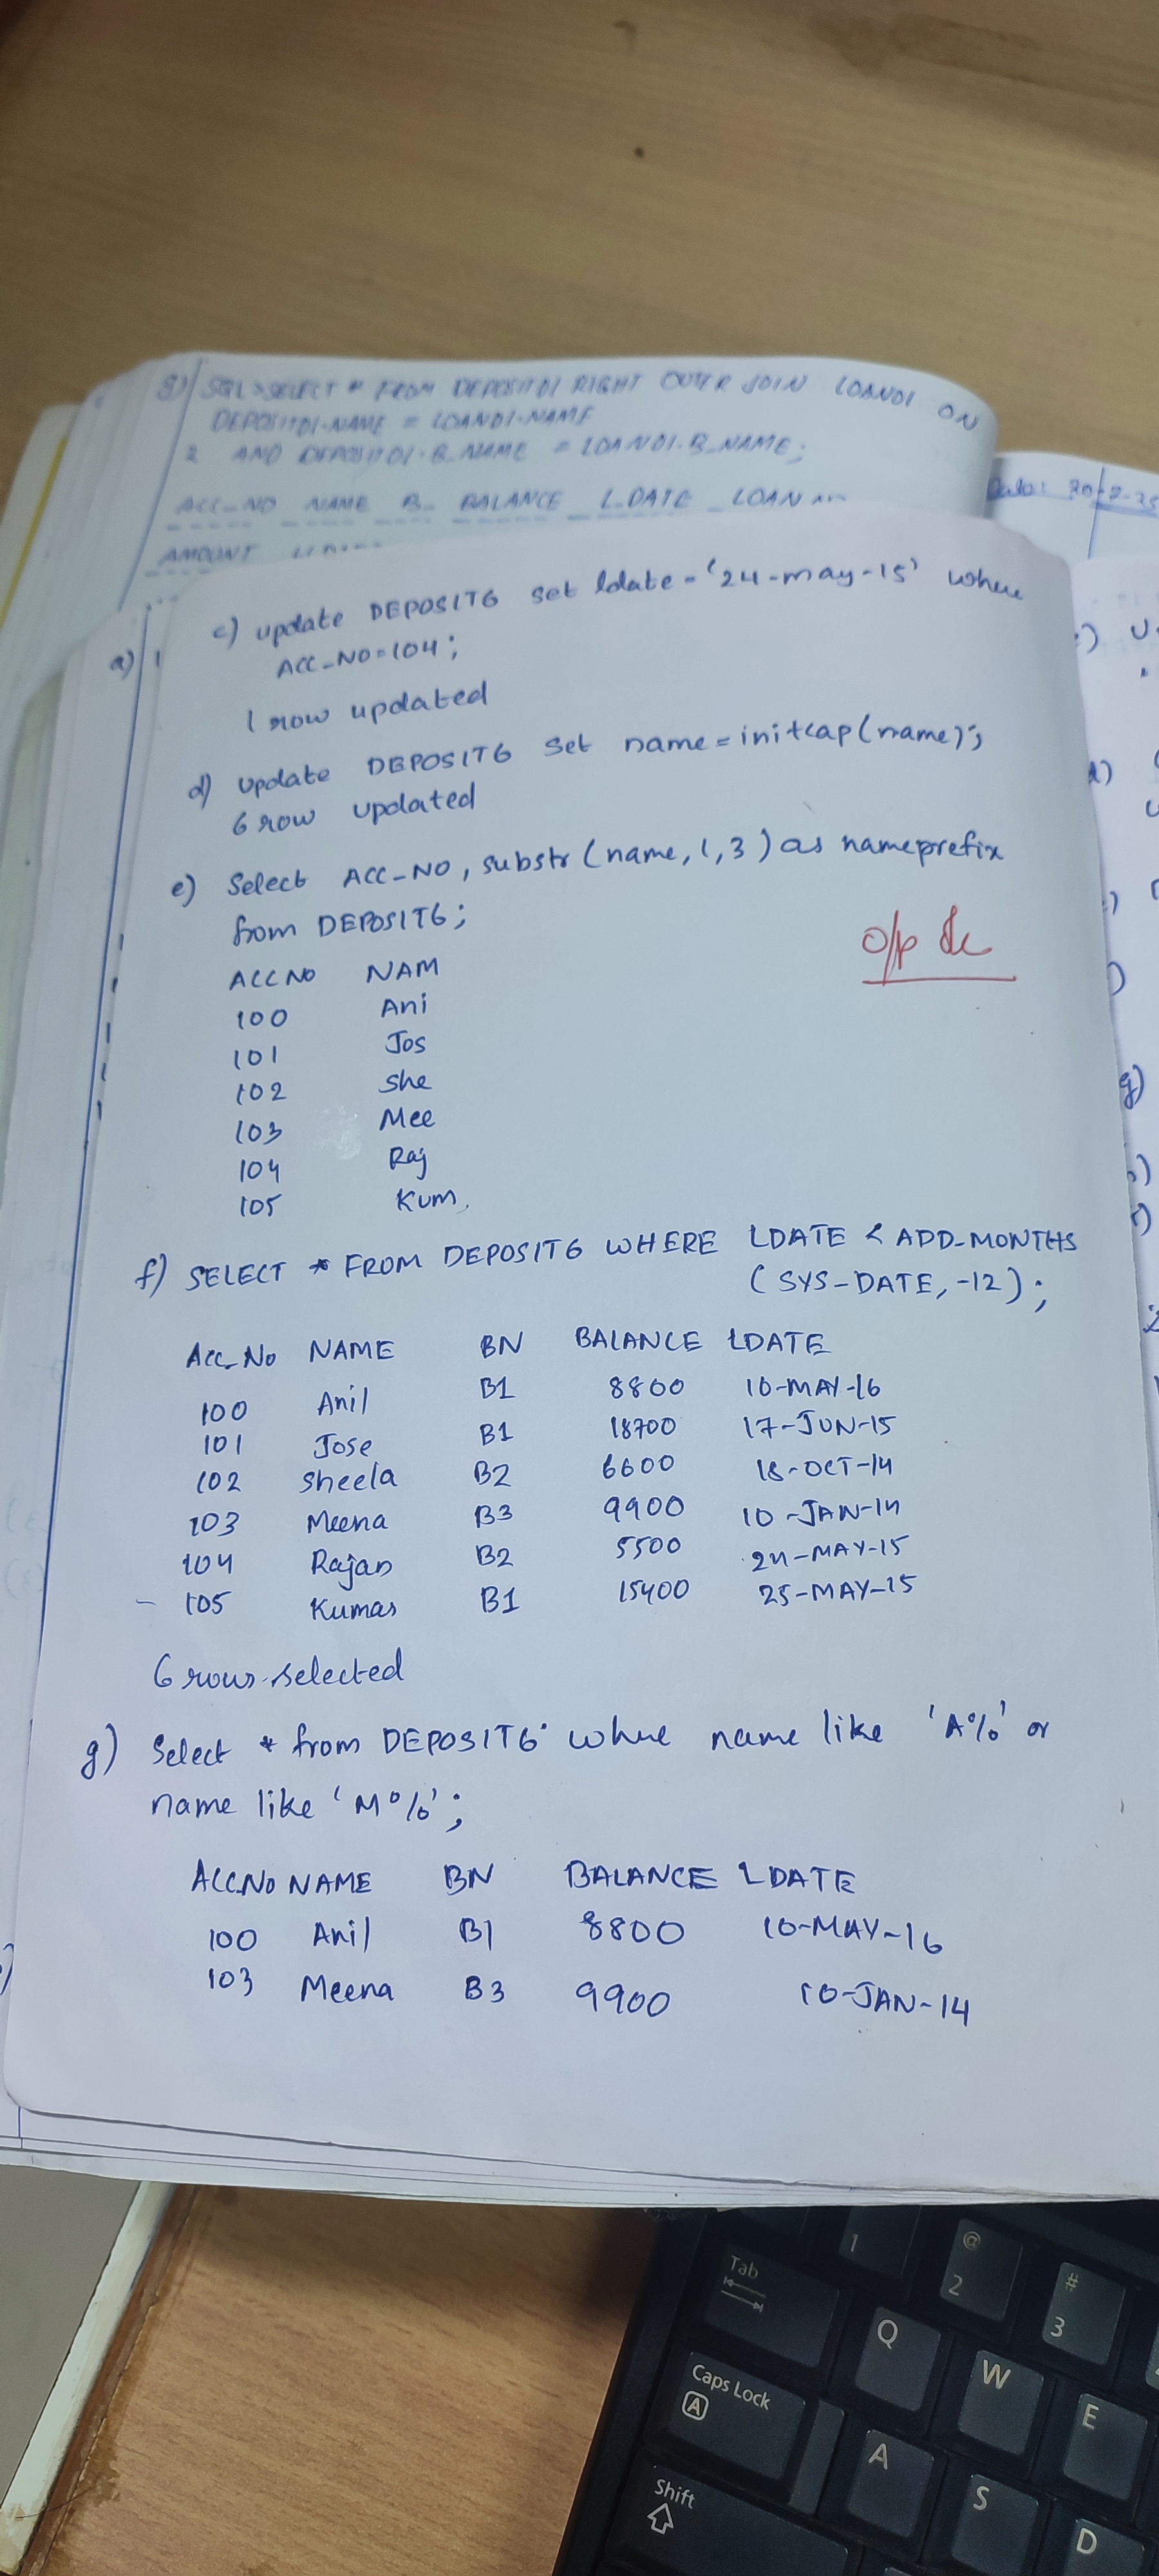 g) SQL>SELECT * FROM DEPOSITD1 RIGHT OUTER JOIN LOAND1 ON
DEPOSITD1.NAME = LOAND1.NAME
2 AND DEPOSITD1.B_NAME = LOAND1.B_NAME;
ACC_NO NAME B_ BALANCE L_DATE LOAN
AMOUNT
a)
c) update DEPOSIT6 set ldate='24-may-15' where
ACC_NO=104;
1 row updated
d) update DEPOSIT6 set name=initcap(name);
6 row updated
e) Select ACC_NO, substr(name,1,3) as nameprefix
from DEPOSIT6;
o/p
ACCNO NAM
100 Ani
101 Jos
102 She
103 Mee
104 Raj
105 Kum
f) SELECT * FROM DEPOSIT6 WHERE LDATE < ADD-MONTHS
(SYS-DATE, -12);
Acc_No NAME BN BALANCE LDATE
100 Anil B1 8800 10-MAY-16
101 Jose B1 18700 17-JUN-15
102 Sheela B2 6600 18-OCT-14
103 Meena B3 9900 10-JAN-14
104 Rajan B2 5500 24-MAY-15
105 Kumar B1 15400 25-MAY-15
6 rows selected
g) Select * from DEPOSIT6 where name like 'A%' or
name like 'M%';
ACCNO NAME BN BALANCE LDATE
100 Anil B1 8800 10-MAY-16
103 Meena B3 9900 10-JAN-14
Tab
1
@
2
#
3
Q
W
E
Caps Lock
A
A
S
D
Shift